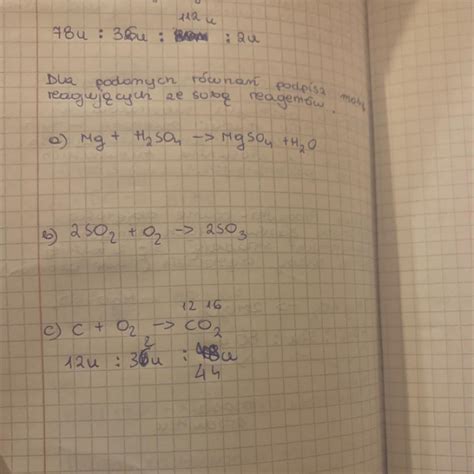 112u
78u : 36u : : 2u
Dla podanych równań podpisz masy
reagujących ze sobą reagetów.
a) Mg + H₂SO₄ → MgSO₄ + H₂O
b) 2SO₂ + O₂ → 2SO₃
12 16
c) C + O₂ → CO₂
2
12u : 3u : u
44